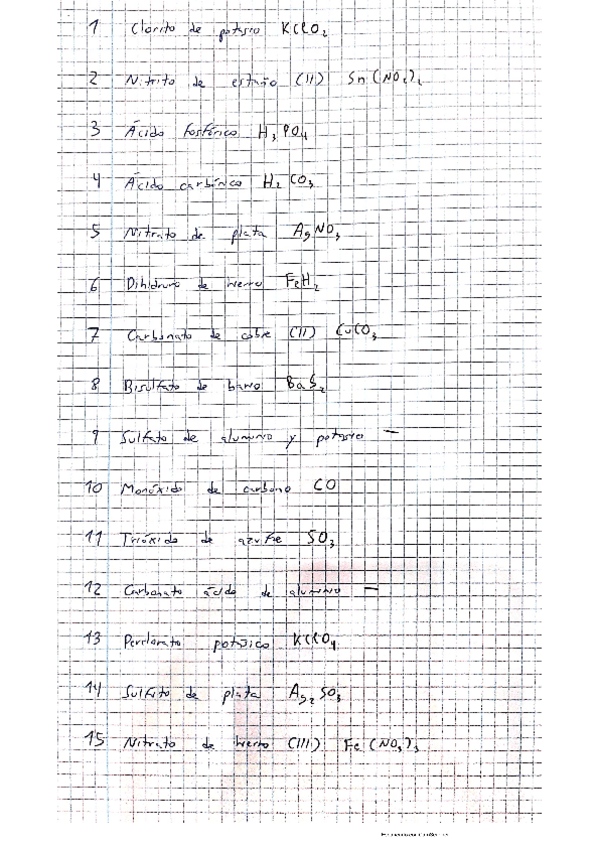 1 Clorito de potasio KClO₂
2 Nitrito de estaño (II) Sn(NO₂)₂
3 Ácido fosfórico H₃PO₄
4 Ácido carbónico H₂CO₃
5 Nitrato de plata AgNO₃
6 Dihidruro de hierro FeH₂
7 Carbonato de cobre (II) CuCO₃
8 Bisulfato de bario BaS₂
9 Sulfato de aluminio y potasio —
10 Monóxido de carbono CO
11 Trióxido de azufre SO₃
12 Carbonato ácido de aluminio —
13 Perclorato potásico KClO₄
14 Sulfito de plata Ag₂SO₃
15 Nitrato de hierro (III) Fe(NO₃)₃